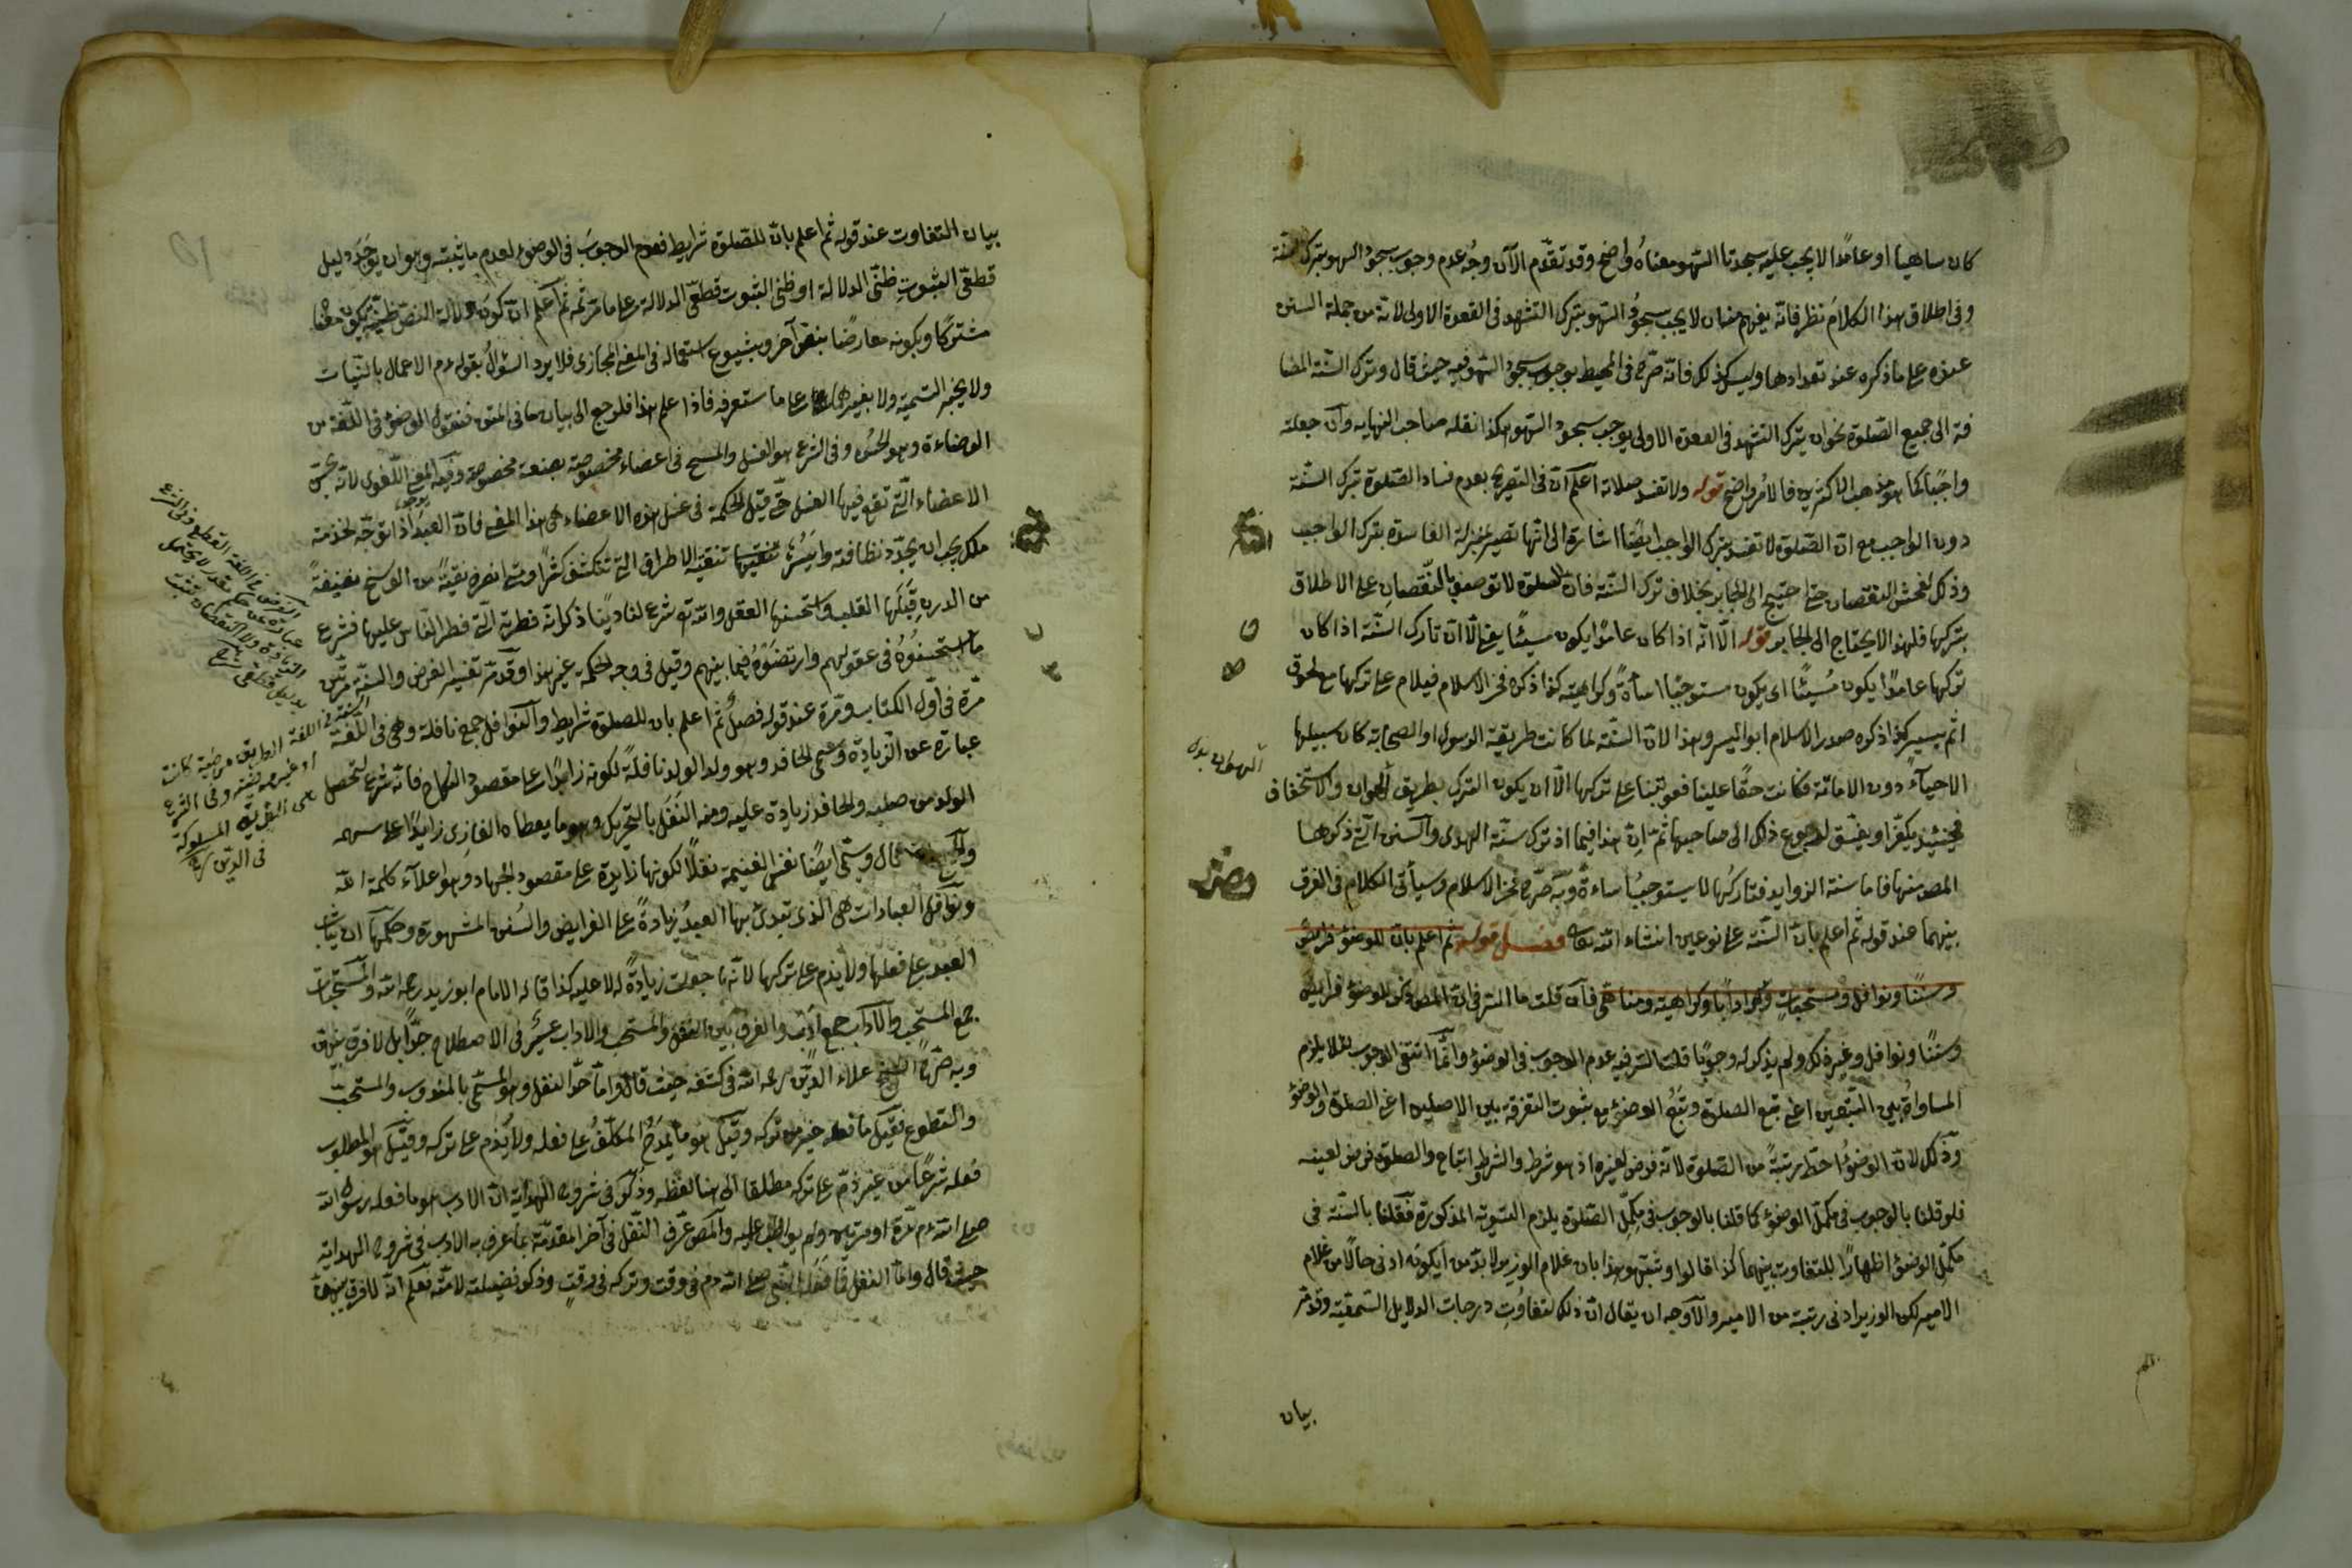 كان ساهيا او عامدًا لا يجب عليه سجدتا السهو معناه واضح وقد تقدّم الآن وجه عدم وجوب سجود السهو بترك السنة
وفي اطلاق هذا الكلام نظر فانه يفهم منه ان لا يجب سجود السهو بترك التشهد في القعدة الاولى لانه من جملة السنن
عنده على ما ذكره عند تعدادها وليس كذلك فانه صرّح في المحيط بوجوب سجود السهو فيه حيث قال وترك السنة المضا
فة الى جميع الصلوة نحو ان يترك التشهد في القعدة الاولى يوجب سجود السهو هكذا نقله صاحب النهايه وان جعلته
واجبًا كما هو مذهب الاكثرين فالامر واضح قوله ولا تفسد صلاته اعلم ان في التصريح بعدم فساد الصلوة بترك السنة
دون الواجب مع ان الصلوة لا تفسد بترك الواجب ايضًا اشارة الى انها تصير بمنزلة الفاسدة بترك الواجب
وذلك لفحش النقصان حتى احتيج الى الجابر بخلاف ترك السنة فان الصلوة لا توصف بالنقصان على الاطلاق
بتركها فلهذا لا يحتاج الى الجابر قوله الا انه اذا كان عامدًا يكون مسيئًا يعني الا ان تارك السنة اذا كان
تركها عامدًا يكون مسيئًا اى يكون مستوجبًا اساءةً وكراهية كذا ذكره فخر الاسلام فيلام على تركها مع لحوق
اثم يسير كذا ذكره صدر الاسلام ابو اليسر وهذا لان السنة لما كانت طريقة الرسول او الصحابة كان سبيلها
الاحياء دون الاماتة فكانت حقًا علينا فعوتبنا على تركها الا ان يكون الترك بطريق الهوان والاستخفاف
فحينئذ يكفر او يفسق لرجوع ذلك الى صاحبها ثم ان هذا فيما اذ ترك سنة الهدى والسنن التي ذكرها
المص منها فاما سنة الزوايد فتاركها لا يستوجب اساءةً وبه صرّح فخر الاسلام وسيأتى الكلام في الفرق
بينهما عند قوله ثم اعلم بان السنة على نوعين انشاء الله تعالى فصل قوله ثم اعلم بان للوضوء فرائض
وسننًا ونوافل ومستحبات وآدابًا وكراهية ومناهى فان قلت ما السر في ان المص ذكر للوضوء فرايض
وسننًا ونوافل وغير ذلك ولم يذكر له وجوبًا قلت السر فيه عدم الوجوب في الوضوء وانما انتفى الوجوب لئلا يلزم
المساواة بين التبعين اعنى تبع الصلوة وتبع الوضوء مع ثبوت التفرقة بين الاصلين اعنى الصلوة والوضوء
وذلك لان الوضوء احط رتبةً من الصلوة لانه فرض لغيره اذ هو شرط والشروط اتباع والصلوة فرض لعينه
فلو قلنا بالوجوب في مكمل الوضوء كما قلنا بالوجوب في مكمل الصلوة يلزم التسوية المذكورة فقلنا بالسنة في
مكمل الوضوء اظهارًا للتفاوت بينهما كذا قالوا وشبهو هذا بان غلام الوزير لا بد من ان يكون ادنى حالًا من غلام
الامير لكون الوزير ادنى رتبة من الامير والاوجه ان يقال ان ذلك لتفاوت درجات الدلايل السمعية وقد مر
بيان
بيان التفاوت عند قوله ثم اعلم بان للصلوة شرايط فعدم الوجوب في الوضوء لعدم ما يثبته وهو ان يوجد دليل
قطعى الثبوت ظنى الدلالة او ظنى الثبوت قطعى الدلالة على ما مر ثمه ثم اعلم ان كون دلالة النص ظنية بكون معناه
مشتركًا وبكونه معارضًا بنص آخر وبشيوع استعماله في المعنى المجازى فلا يرد السؤال بقوله عم الاعمال بالنيات
ولا بخبر التسمية ولا بغيرهما على ما ستعرفه فاذا علم هذا فلنرجع الى بيان ما في المتن فنقول الوضوء في اللغة من
الوضاءة وهو الحسن وفي الشرع هو الغسل والمسح في اعضاء مخصوصة بصنعة مخصوصة وفيه المعنى اللغوى لانه يحسن
الاعضاء التي تقع فيها الغسل حتى قيل الحكمة في غسل هذه الاعضاء هي هذا المعنى فان العبد اذا توجّه لخدمة
ملك يجب ان يجدد نظافته وايسرها تنقية الاطراف التي تنكشف كثيرًا ومتى ابصره نقيةً من الوسخ نظيفةً
من الدرن قبلها القلب واستحسنها العقل والله تع شرع لنا دينًا ذكر انه فطرته التي فطر الناس عليها فشرع
ما استحسنوه في عقولهم وارتضوه فيما بينهم وقيل في وجه الحكمة غير هذا وقد مر تفسير الفرض والسنة مرتين
مرّة في اول الكتاب ومرّة عند قوله فصل ثم اعلم بان للصلوة شرايط والنوافل جمع نافلة وهي في اللغة
عبارة عن الزيادة وسمى الحافد وهو ولد الولد نافلةً لكونه زايدًا على مقصود النكاح فانه شرع لتحصل
الولد من صلبه والحافد زيادة عليه ومنه النفل بالتحريك وهو ما يعطاه الغازى زايدًا على سهمه
قال وسمى ايضًا نفس الغنيمة نفلًا لكونها زايدة على مقصود الجهاد وهو اعلاء كلمة الله
ونوافل العبادات هي الذى يبتدئ بها العبد زيادةً على الفرايض والسنن المشهورة وحكمها ان يثاب
العبد على فعلها ولا يذم على تركها لانها جعلت زيادةً له لا عليه كذا قاله الامام ابو زيد رحمه الله والمستحبات
جمع المستحب والآداب جمع ادب والفرق بين النفل والمستحب والاداب عسير في الاصطلاح جدًا بل لا فرق بينها
وبه صرّح الشيخ علاء الدين رحمه الله في كشفه حيث قال اما حدّ النفل وهو المسمى بالمندوب والمستحب
والتطوع فقيل ما فعله خير من تركه وقيل هو ما يمدح المكلف على فعله ولا يذم على تركه وقيل هو المطلوب
فعله شرعًا من غير ذم على تركه مطلقا الى هنا لفظه وذكر في شروح الهداية ان الادب هو ما فعله رسول الله
صلى الله عم مرّة او مرتين ولم يواظب عليه والمص عرّف النفل في آخر المقدمة بما عرف به الادب في شروح الهداية
حيث قال واما النفل فما فعله النبى صلى الله عم في وقت وتركه في وقت وذكر فضيلته لامته فعلم انه لا فرق بينهما
الفرض في اللغة القطع وفي الشرع
عبارة عن حكم مقدر لا يحتمل
الزيادة ولا النقصان ثبت
بدليل قطعى
السنة في اللغة الطريق مرضية كانت
او غير مرضية وفي الشرع
هى الطريقة المسلوكة
في الدين